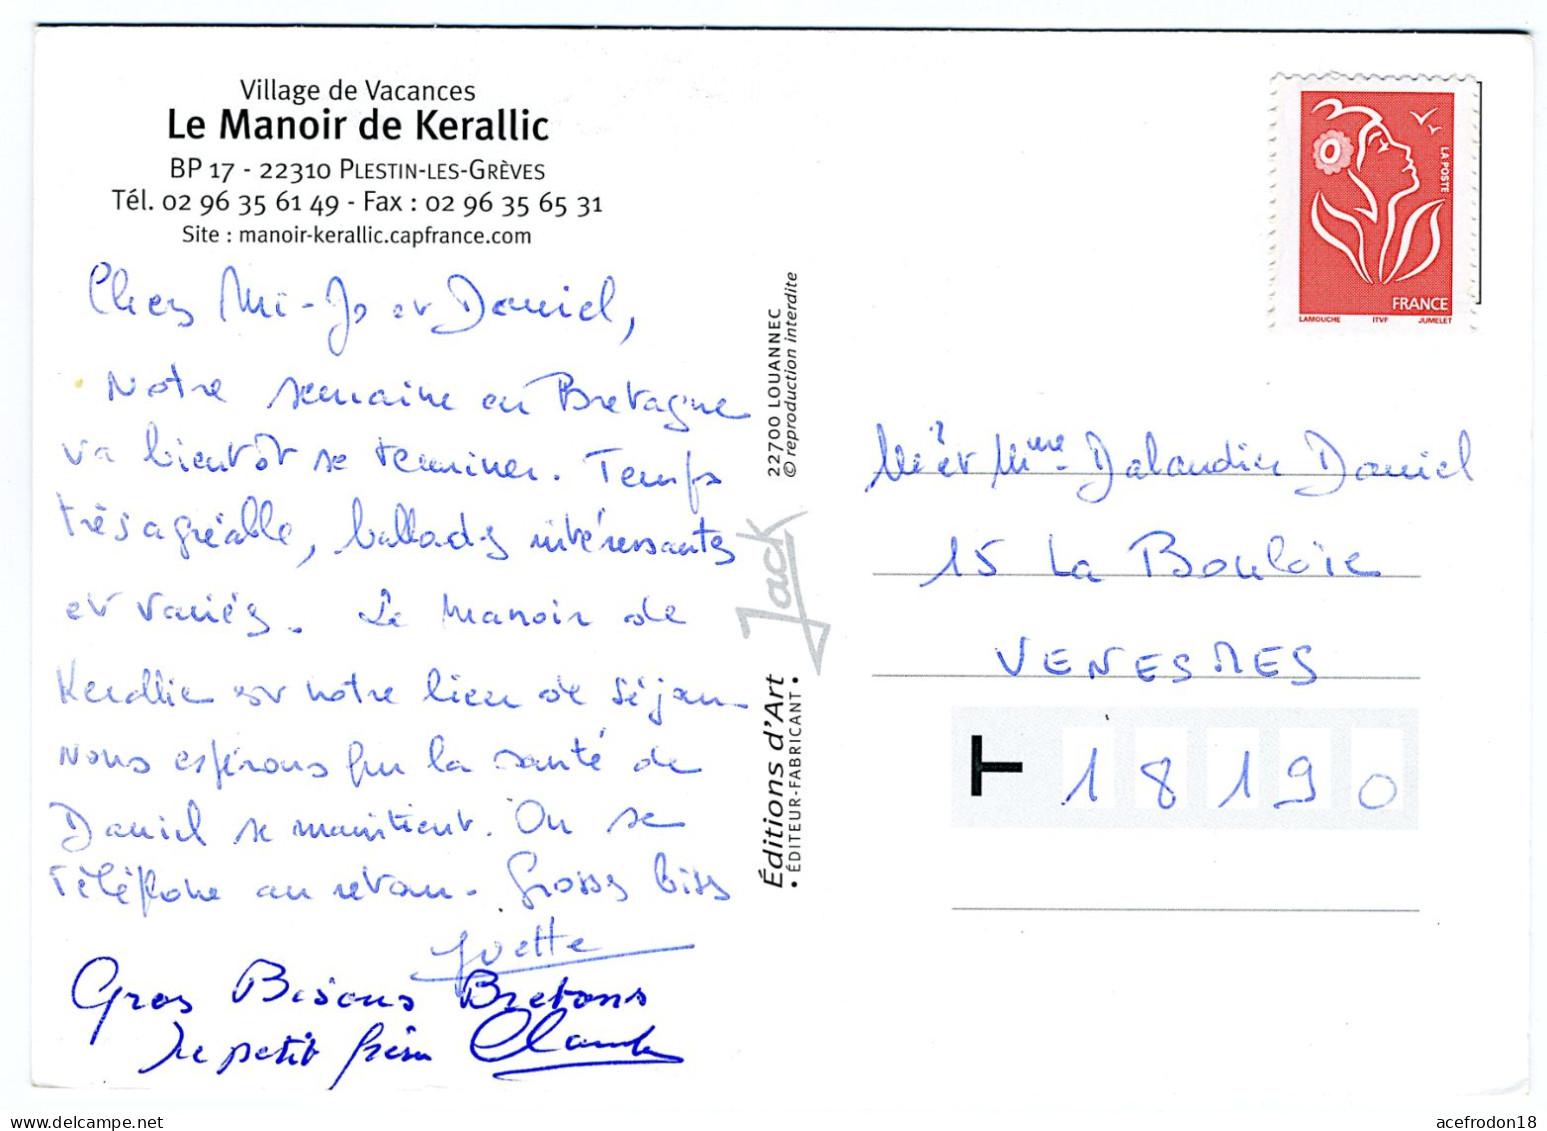 Village de Vacances
Le Manoir de Kerallic
BP 17 - 22310 PLESTIN-LES-GRÈVES
Tél. 02 96 35 61 49 - Fax : 02 96 35 65 31
Site : manoir-kerallic.capfrance.com
Chers Mi-Jo et Daniel,
Notre semaine en Bretagne
va bientôt se terminer. Temps
très agréable, ballades intéressantes
et variés. Le Manoir de
Kerallic est notre lieu de séjour
Nous espérons que la santé de
Daniel se maintient. On se
Téléphone au retour. Grosses bises
Yvette
Gros Bisous Bretons
Le petit frère Claude
22700 LOUANNEC
© reproduction interdite
Jack
Éditions d'Art
• ÉDITEUR-FABRICANT •
LA POSTE
FRANCE
LAMOUCHE ITVF JUMELET
Mr et Mme Dalaudier Daniel
15 La Bouloie
VENESMES
T 18190
acefrodon18